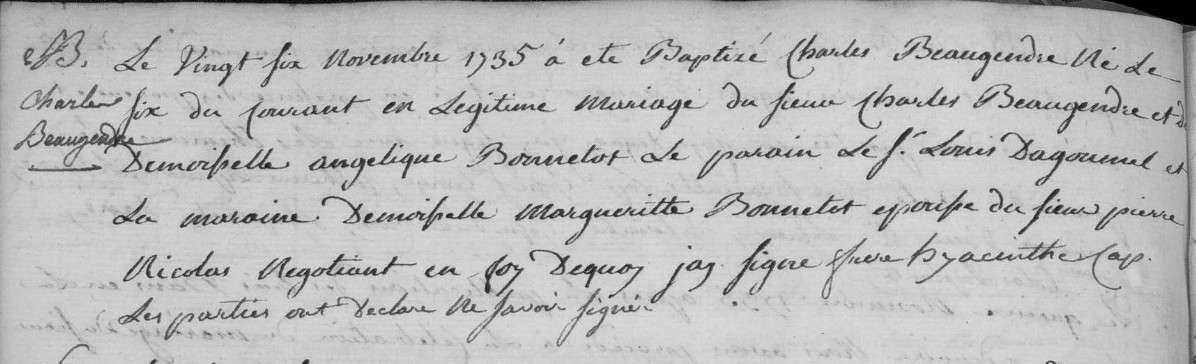 B.
Charles
Beaugendre
Le Vingt six Novembre 1735 á ete Baptizé Charles Beaugendre Né Le
six du Courant en Legitime Mariage du sieur Charles Beaugendre et d
Demoisselle angelique Bonnetot Le parain Le Sr. Louis Dagoumel et
La maraine Demoisselle Margueritte Bonnetot epousse du sieur pierre
Nicolas Negotiant en foy Dequoy jay signe frere hyacinthe Cap.
Les parties ont Declare Ne savoir signer